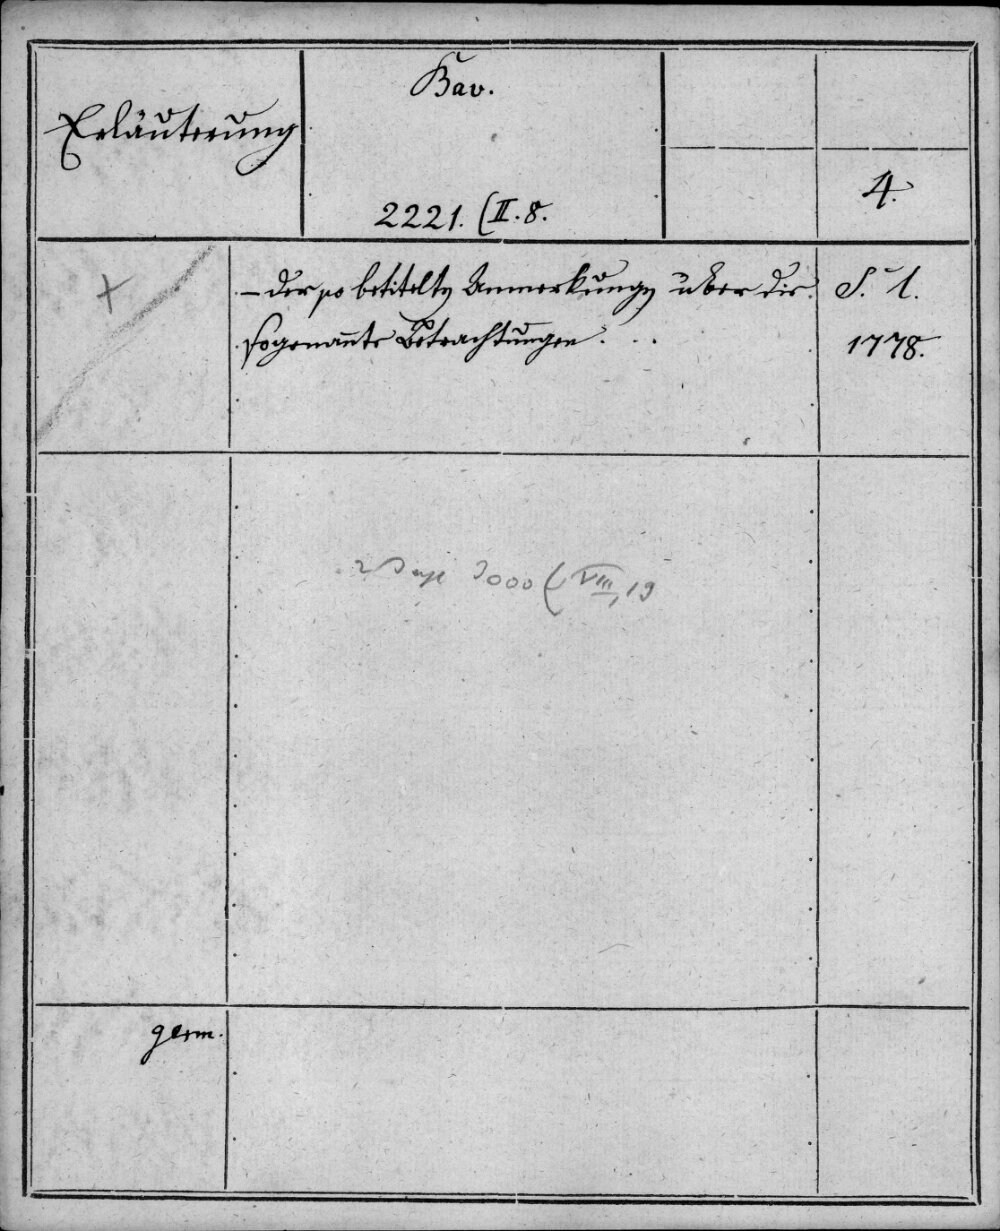 Erläuterung
Bav.
2221. (II. 8.
4.
+
– der so betitelten Anmerkungen über die
sogenannte Betrachtungen . . .
S. l.
1778.
2 3000 (VIII, 19
germ.